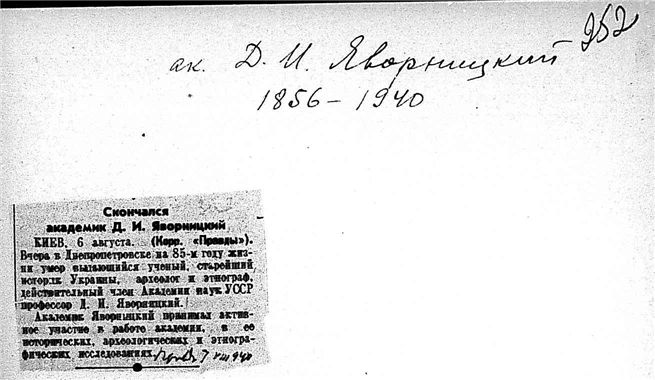 252
ак. Д. И. Яворницкий
1856–1940
Скончался
академик Д. И. Яворницкий
КИЕВ, 6 августа. (Корр. «Правды»).
Вчера в Днепропетровске на 85-м году жиз-
ни умер выдающийся ученый, старейший
историк Украины, археолог и этнограф,
действительный член Академии наук УССР
профессор Д. И. Яворницкий.
Академик Яворницкий принимал актив-
ное участие в работе академии, в ее
исторических, археологических и этногра-
фических исследованиях.
7 VIII 940